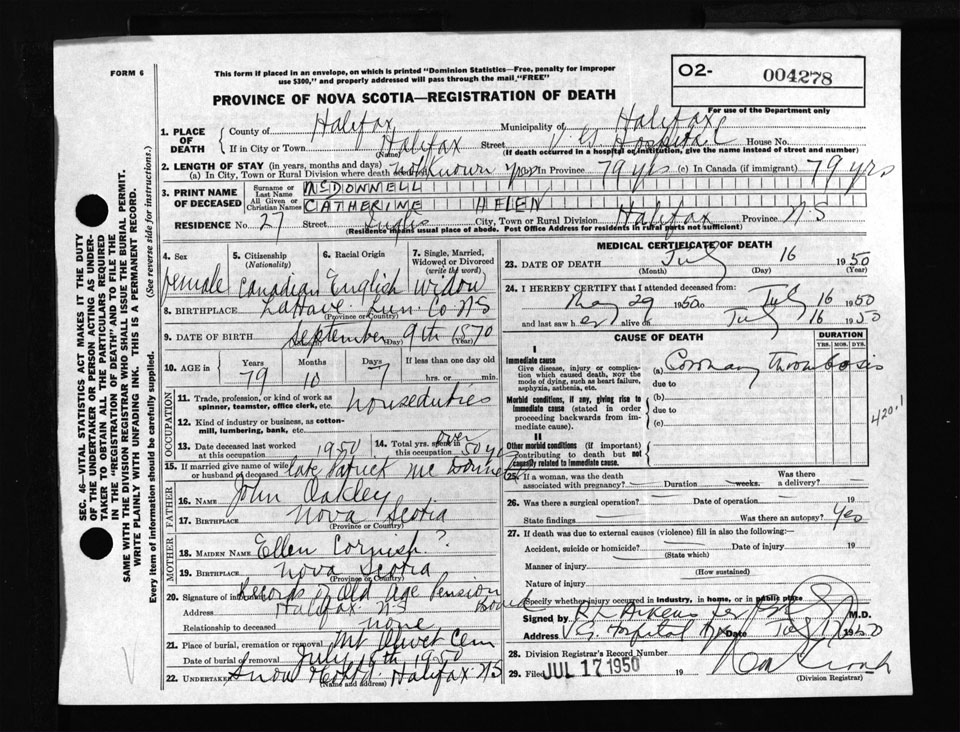 FORM 6
This form if placed in an envelope, on which is printed "Dominion Statistics—Free, penalty for improper
use $300," and properly addressed will pass through the mail, "FREE"
PROVINCE OF NOVA SCOTIA—REGISTRATION OF DEATH
O2- 004278
For use of the Department only
1. PLACE OF DEATH
County of Halifax Municipality of Halifax
If in City or Town Halifax Street V. G. Hospital House No.
(Name) (If death occurred in a hospital or institution, give the name instead of street and number)
2. LENGTH OF STAY (in years, months and days)
(a) In City, Town or Rural Division where death occurred not known yrs (b) In Province 79 yrs (c) In Canada (if immigrant) 79 yrs
3. PRINT NAME OF DECEASED
Surname or Last Name McDONNELL
All Given or Christian Names CATHERINE HELEN
RESIDENCE No. 27 Street Inglis City, Town or Rural Division Halifax Province N.S
(Residence means usual place of abode. Post Office Address for residents in rural parts not sufficient)
4. Sex
female
5. Citizenship (Nationality)
Canadian
6. Racial Origin
English
7. Single, Married, Widowed or Divorced (write the word)
Widow
8. BIRTHPLACE LaHave Lun Co NS
(Province or Country)
9. DATE OF BIRTH September 9th 1870
(Month) (Day) (Year)
10. AGE in Years Months Days If less than one day old
79 10 7 hrs. or min.
OCCUPATION
11. Trade, profession, or kind of work as
spinner, teamster, office clerk, etc. houseduties
12. Kind of industry or business, as cotton-
mill, lumbering, bank, etc.
13. Date deceased last worked
at this occupation 1950
14. Total yrs. spent in
this occupation over 50 yrs
15. If married give name of wife
or husband of deceased late Patrick McDonnell
FATHER
16. NAME John Oakley
17. BIRTHPLACE Nova Scotia
(Province or Country)
MOTHER
18. MAIDEN NAME Ellen Cornish ?
19. BIRTHPLACE Nova Scotia
(Province or Country)
20. Signature of informant Records of Old Age Pension Board
Address Halifax N.S
Relationship to deceased none
21. Place of burial, cremation or removal Mt Olivet Cem
Date of burial or removal July 18th 1950
22. UNDERTAKER Snow Halifax NS
(Name and address)
MEDICAL CERTIFICATE OF DEATH
23. DATE OF DEATH July 16 1950
(Month) (Day) (Year)
24. I HEREBY CERTIFY that I attended deceased from:
May 29 1950 to July 16 1950
and last saw h er alive on July 16 1950
CAUSE OF DEATH
DURATION
YRS. MOS. DYS.
I
Immediate cause
Give disease, injury or complica-
tion which caused death, NOT the
mode of dying, such as heart failure,
asphyxia, asthenia, etc.
(a) Coronary thrombosis
due to
Morbid conditions, if any, giving rise to
immediate cause (stated in order
proceeding backwards from im-
mediate cause).
(b)
due to
(c)
420.1
II
Other morbid conditions (if important)
contributing to death but not
causally related to immediate cause.
25. If a woman, was the death
associated with pregnancy? — Duration — weeks. Was there
a delivery? —
26. Was there a surgical operation? — Date of operation — 19
State findings Was there an autopsy? Yes
27. If death was due to external causes (violence) fill in also the following:
Accident, suicide or homicide? — Date of injury 19
(State which)
Manner of injury
(How sustained)
Nature of injury
Specify whether injury occurred in industry, in home, or in public place
Signed by M.D.
Address V.G. Hospital Hfx Date July 17 1950
28. Division Registrar's Record Number
29. Filed JUL 17 1950 19
(Division Registrar)
SEC. 46—VITAL STATISTICS ACT MAKES IT THE DUTY
OF THE UNDERTAKER OR PERSON ACTING AS UNDER-
TAKER TO OBTAIN ALL THE PARTICULARS REQUIRED
IN THE "REGISTRATION OF DEATH" AND TO FILE THE
SAME WITH THE DIVISION REGISTRAR WHO SHALL ISSUE THE BURIAL PERMIT.
WRITE PLAINLY WITH UNFADING INK. THIS IS A PERMANENT RECORD.
Every item of information should be carefully supplied. (See reverse side for instructions.)